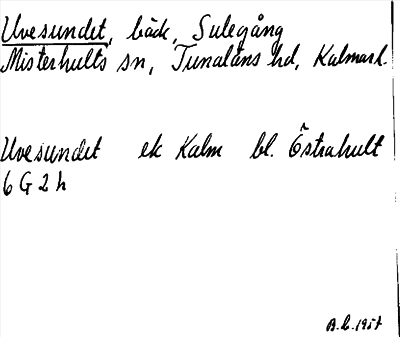 Uvesundet, bäck, Sulegång
Misterhults sn, Tunaläns hd, Kalmar l.
Uvesundet ek Kalm bl. Östrahult
6 G 2 h
1957